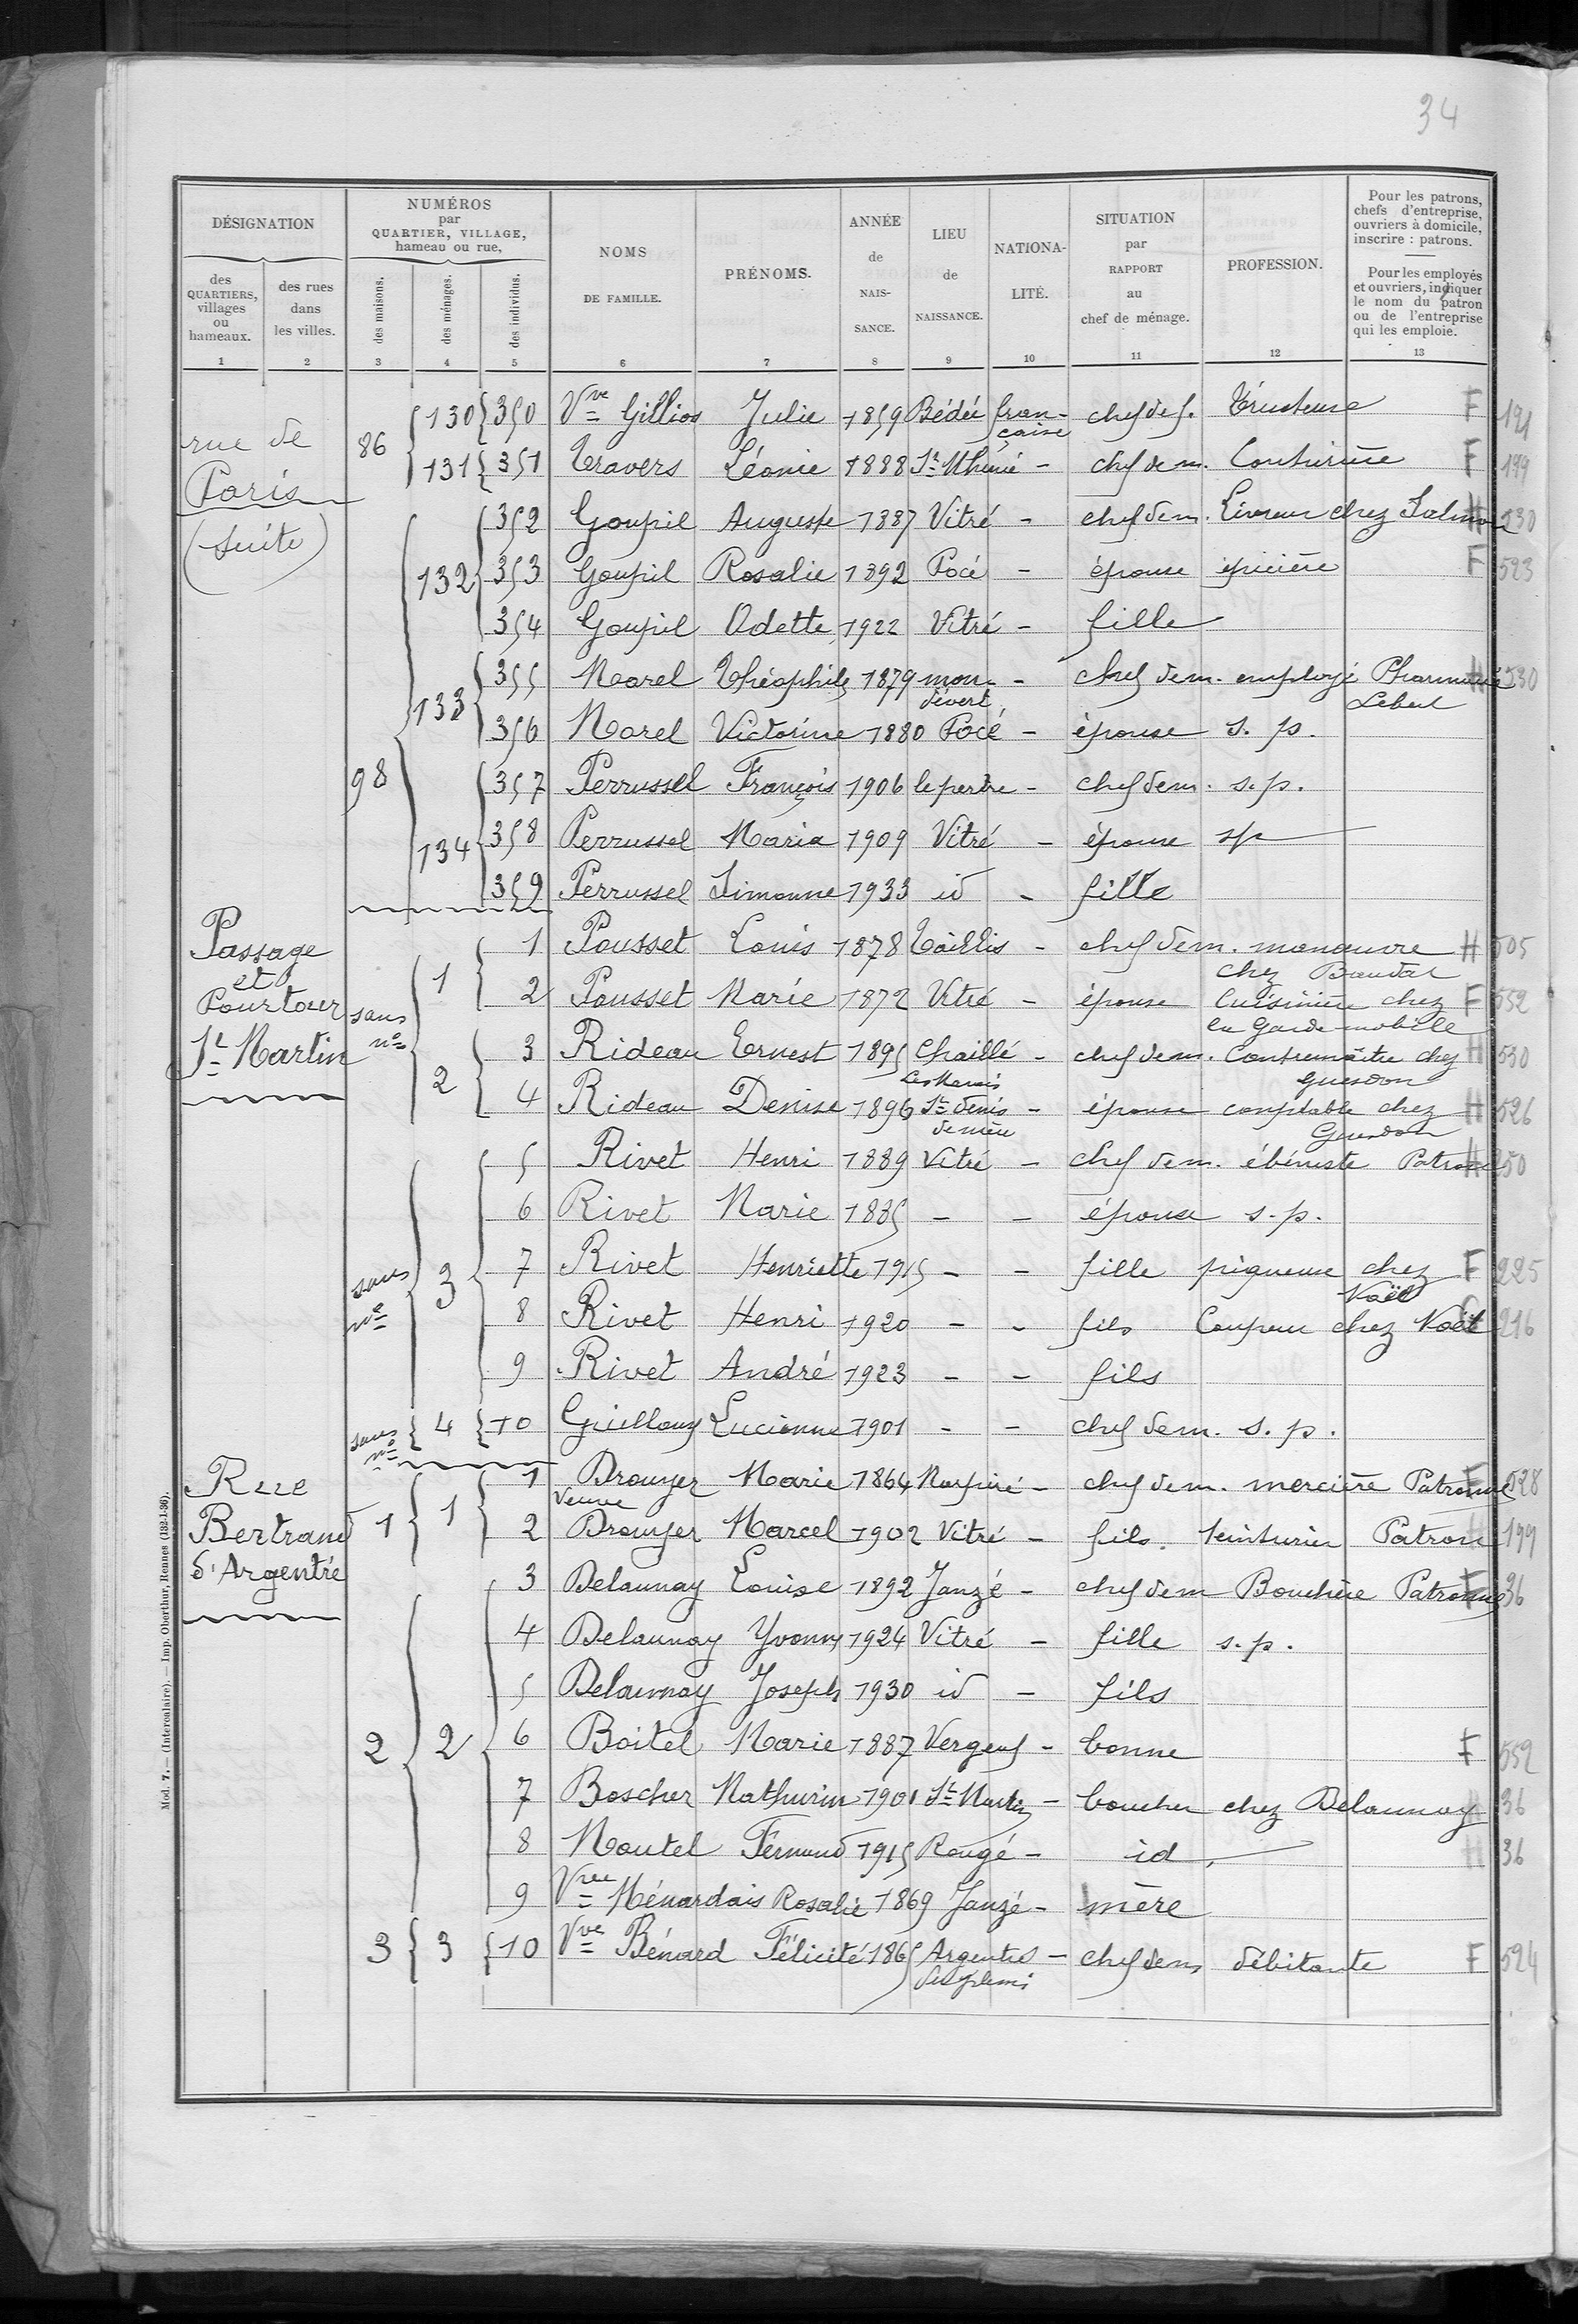 34
DÉSIGNATION
des QUARTIERS, villages ou hameaux.
des rues dans les villes.
NUMÉROS par QUARTIER, VILLAGE, hameau ou rue.
des maisons.
des ménages.
des individus.
NOMS DE FAMILLE.
PRÉNOMS.
ANNÉE de NAIS- SANCE.
LIEU de NAISSANCE.
NATIONA- LITÉ.
SITUATION par RAPPORT au chef de ménage.
PROFESSION.
Pour les patrons, chefs d'entreprise, ouvriers à domicile, inscrire : patrons.
Pour les employés et ouvriers, indiquer le nom du patron ou de l'entreprise qui les emploie.
1 2 3 4 5 6 7 8 9 10 11 12 13
rue de Paris (suite)
86 130 350 Vve Gillios Julie 1859 Bédée française chef de f. F 191
131 351 Travers Léonie 1888 St Mhené - chef de m. Couturière F 199
98 132 352 Goupil Auguste 1887 Vitré - chef dem. Livreur chez Salmon H 530
353 Goupil Rosalie 1892 Pocé - épouse épicière F 523
354 Goupil Odette 1922 Vitré - fille
133 355 Morel Théophile 1879 mondévert - chef dem. employé Pharmacie H 530
356 Morel Victorine 1880 Pocé - épouse s. p.
134 357 Perrussel François 1906 le pertre - chef dem. s.p.
358 Perrussel Maria 1909 Vitré - épouse sp
359 Perrussel Simonne 1933 id - fille
Passage et Pourtour St Martin
sans no 1 1 Pousset Louis 1878 Taillis - chef dem. manœuvre chez H 505
2 Pousset Marie 1872 Vitré - épouse Cuisinière chez la Garde mobile F 552
2 3 Rideau Ernest 1895 Chaillé Les Marais - chef dem. Contremaître chez Guesdon H 530
4 Rideau Denise 1896 St Denis - épouse comptable chez Guesdon H 526
sans no 3 5 Rivet Henri 1889 Vitré - chef dem. ébéniste Patron H 250
6 Rivet Marie 1885 - - épouse s.p.
7 Rivet Henriette 1915 - - fille piqueuse chez Noël F 225
8 Rivet Henri 1920 - - fils Coupeur chez Noël 216
9 Rivet André 1923 - - fils
sans no 4 10 Guilloux Lucienne 1901 - - chef dem. s. p.
Rue Bertrand d'Argentré
1 1 1 Drouyer Veuve Marie 1864 Marpiré - chef dem. mercière Patronne F 528
2 Drouyer Marcel 1902 Vitré - fils. teinturier Patron H 199
2 2 3 Delaunay Louise 1892 Janzé - chef dem Bouchère Patronne F 36
4 Delaunay Yvonne 1924 Vitré - fille s.p.
5 Delaunay Joseph 1930 id - fils
6 Boitel Marie 1887 - bonne F 552
7 Boscher Mathurin 1901 St Martin - boucher chez Delaunay H 36
8 Moutel Fernand 1915 Rougé - id. H 36
9 Vve Ménardais Rosalie 1869 Janzé - mère
3 3 10 Vve Bénard Félicité 1865 Argentré - chef dem débitante F 524
Mod. 7. — (Intercalaire). — Imp. Oberthur, Rennes (132-1-36).